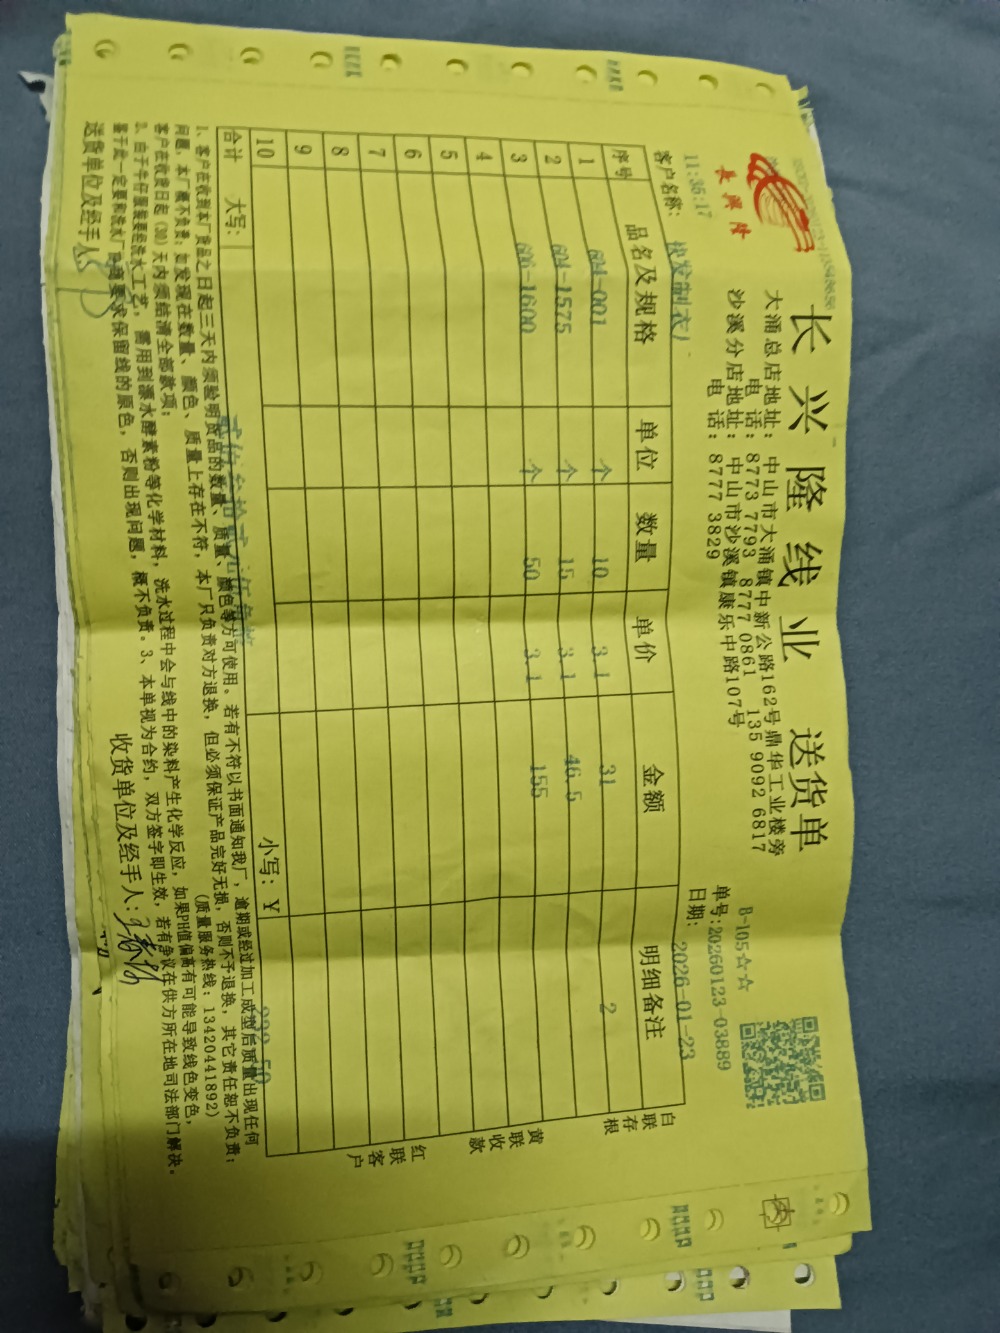 长兴隆线业 送货单
長興隆
大涌总店地址: 中山市大涌镇中新公路162号鼎华工业楼旁
电话: 8773 7793 8777 0861 135 9092 6817
沙溪分店地址: 中山市沙溪镇康乐中路107号
电话: 8777 3829
B-105☆☆
单号:20260123-03889
11:35:17
日期: 2026-01-23
客户名称: 快发制衣厂
序号 品名及规格 单位 数量 单价 金额 明细备注
1 604-001 个 10 3.1 31 2
2 604-1575 个 15 3.1 46.5
3 606-1600 个 50 3.1 155
4
5
6
7
8
9
10
合计 大写: 贰佰叁拾贰元伍角整 小写: ¥ 232.50
白联存根
黄联收款
红联客户
1、客户在收到本厂货品之日起三天内须验明货品的数量、质量、颜色等方可使用。若有不符以书面通知我厂,逾期或经过加工成型后质量出现任何
问题,本厂概不负责;如发现在数量、颜色、质量上存在不符,本厂只负责对方退换,但必须保证产品完好无损,否则不予退换,其它责任恕不负责;
客户在收货日起(30)天内须结清全部款项; (质量服务热线: 13420441892)
2、由于牛仔服装要经洗水工艺,需用到漂水酵素粉等化学材料,洗水过程中会与线中的染料产生化学反应,如果PH值偏高有可能导致线色变色,
鉴于此一定要和洗水厂协商要求保留线的原色,否则出现问题,概不负责。3、本单视为合约,双方签字即生效,若有争议在供方所在地司法部门解决。
送货单位及经手人: 收货单位及经手人: